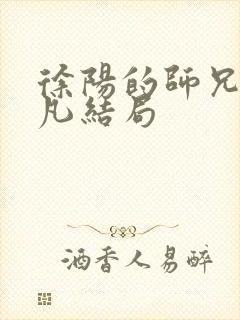 徐陽的師兄
凡結局
酒香人易醉